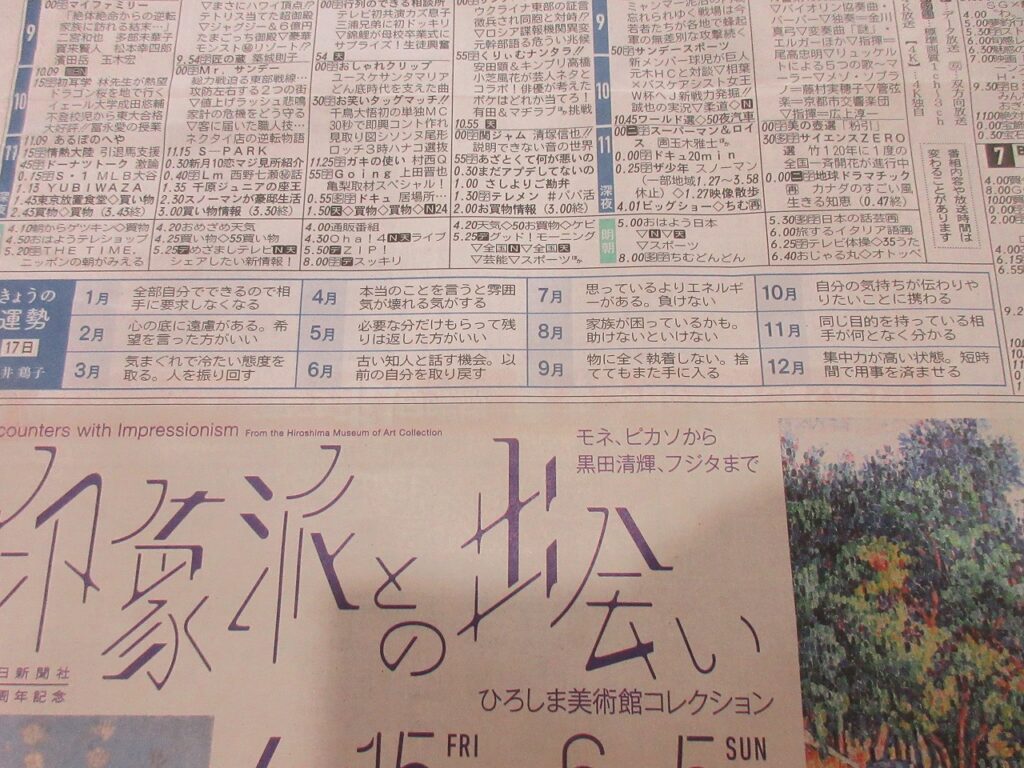 00 マイファミリー
「絶体絶命からの逆転
家族に訪れる結末…
二宮和也 多部未華子
賀来賢人 松本幸四郎
濱田岳 玉木宏
初耳学 林先生が熱望
ドラゴン桜を地で行く
イェール大学成田悠輔
不登校児から東大合格
大好評!冨永愛の授業
11.09 あるほのへや
情熱大陸 引退馬支援
0.45 S・1 MLB大谷
1.13 YUBIWAZA
1.43 東京放置食堂◇買い物
2.45 買物◇買物 (3.43終)
4.10 朝からゲツキン◇買物
4.50 おはようテレショップ
5.20 THE TIME,
ニッポンの朝がみえる
▽まさにハワイ頂点!!
テトリス当てた超御殿
▽ジャグジー&白亜門
たまごっち御殿▽豪華
9.54 匠の蔵 築城則子
00 Mr.サンデー
総力戦迫る東部戦線…
攻防左右する2つの街
▽値上げラッシュ悲鳴
家計の危機をどう守る
▽客に届いた職人技…
ネクタイ店の逆転物語
11.15 S-PARK
0.30 新月10恋マジ見所紹介
0.40 Lm 西野七瀬㊙話
1.35 千原ジュニアの座王
2.30 スノーマンが憂邸生活
3.00 買い物情報 (3.30終)
4.20 おめざめ天気
4.25 買物◇55買い物
5.25 めざましテレビ
シェアしたい新情報!
00 行列のできる相談所
テレビ初共演カズ息子
三浦兄弟に初ドッキリ
▽錦鯉が母校卒業式に
サプライズ!生徒興奮
00 おしゃれクリップ
ユースケサンタマリア
どん底時代を支えた曲
30 お笑いタッグマッチ!!
千鳥大悟初の単独MC
30秒で即興コント作れ
見取り図シソンヌ尾形
ロッチ3時ハナコ選抜
11.25 ガキの使い 村西Q
55 Going 上田晋也
亀梨取材スペシャル!
0.55 ドキュ 居場所…
1.50 買物◇買物◇N24
4.00 通販番組
4.30 Oha!4 N天ライブ
5.50 ZIP!
8.00 スッキリ
ウクライナ東部の証言
徴兵され同胞と対峙!!
▽ロシア諜報機関異変
元幹部語る危うい兆候
55 くりぃむナンタラ!!
安田顕&キンプリ高橋
小芝風花が芸人ネタと
コラボ!俳優が考えた
ボケはどれか当てろ!
有田&マギラブも挑戦
10.55 天
00 関ジャム 清塚信也!!
説明できない音の世界
55 あざとくて何が悪いの
0.30 まだアプデしてないの
1.00 さしより∠勘弁
1.30 テレメン #パパ活
2.00 お買物情報 (8.00終)
4.20 天気◇50お買物◇ケビ
5.25 グッド!モーニング
▽全国N▽全国天
▽芸能▽スポーツ
若者たちが各地で蜂起
軍の無差別な攻撃続く
50 サンデースポーツ
新メンバー球児が巨人
元木HCと対談▽相葉
×バスケアスリート女王
W杯へ♪新戦力発掘!!
誠也の実況▽柔道◇N
10.45 ワールド選◇50夜汽車
00 スーパーマン&ロイ
ス 画玉木雅士
0.00 ドキュ20min
0.25 ザ少年 スノーマン
(一部地域)1.27〜3.58
休止) 1.27◇映像散歩
4.01 ビッグショー◇ちむ
5.00 おはよう日本
▽N▽天
▽スポーツ
8.00 ちむどんどん
▽バイオリン協奏曲・
バーバー▽独奏=金川
真弓▽変奏曲「謎」
エルガーほか▽指揮=
尾高忠明▽リュッケル
トによる5つの歌〜マ
ーラー▽メゾ・ソプラ
ノ=藤村実穂子▽管弦
楽=京都市交響楽団
▽指揮=広上淳一
10.45 美の壺選「粉引」
30 サイエンスZERO
選 竹120年に1度の
全国一斉開花が進行中
0.00 地球ドラマチック
カナダのすごい風
生きる知恵 (0.47終)
5.30 日本の話芸画
6.00 旅するイタリア語画
6.25 テレビ体操◇35うた
6.40 おじゃる丸◇オトッペ
番組内容や放送時間は
変わることがあります
深夜
明朝
きょうの
運勢
17日
井 鶏子
1月 全部自分でできるので相
手に要求しなくなる
2月 心の底に遠慮がある。希
望を言った方がいい
3月 気まぐれで冷たい態度を
取る。人を振り回す
4月 本当のことを言うと雰囲
気が壊れる気がする
5月 必要な分だけもらって残
りは返した方がいい
6月 古い知人と話す機会。以
前の自分を取り戻す
7月 思っているよりエネルギ
ーがある。負けない
8月 家族が困っているかも。
助けないといけない
9月 物に全く執着しない。捨
ててもまた手に入る
10月 自分の気持ちが伝わりや
りたいことに携わる
11月 同じ目的を持っている相
手が何となく分かる
12月 集中力が高い状態。短時
間で用事を済ませる
counters with Impressionism From the Hiroshima Museum of Art Collection
モネ、ピカソから
黒田清輝、フジタまで
印象派との出会い
ひろしま美術館コレクション
日新聞社
周年記念
4.15 FRI
6.5 SUN